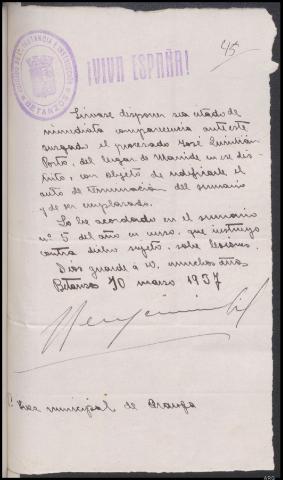 JUZGADO DE 1ª INSTANCIA E INSTRUCCION
BETANZOS
¡VIVA ESPAÑA!
45
Sirvase disponer sea citado de
inmediata comparecencia ante este
Juzgado el procesado José
Porto, del lugar de en ese dis-
trito, con objeto de notificarle el
auto de terminacion del sumario
y de ser emplazado.
Lo he acordado en el sumario
nº 5 del año en curso, que instruyo
contra dicho sujeto, sobre lesiones.
Dios guarde á V. muchos años
Betanzos 10 marzo 1937
Juez municipal de Aranga